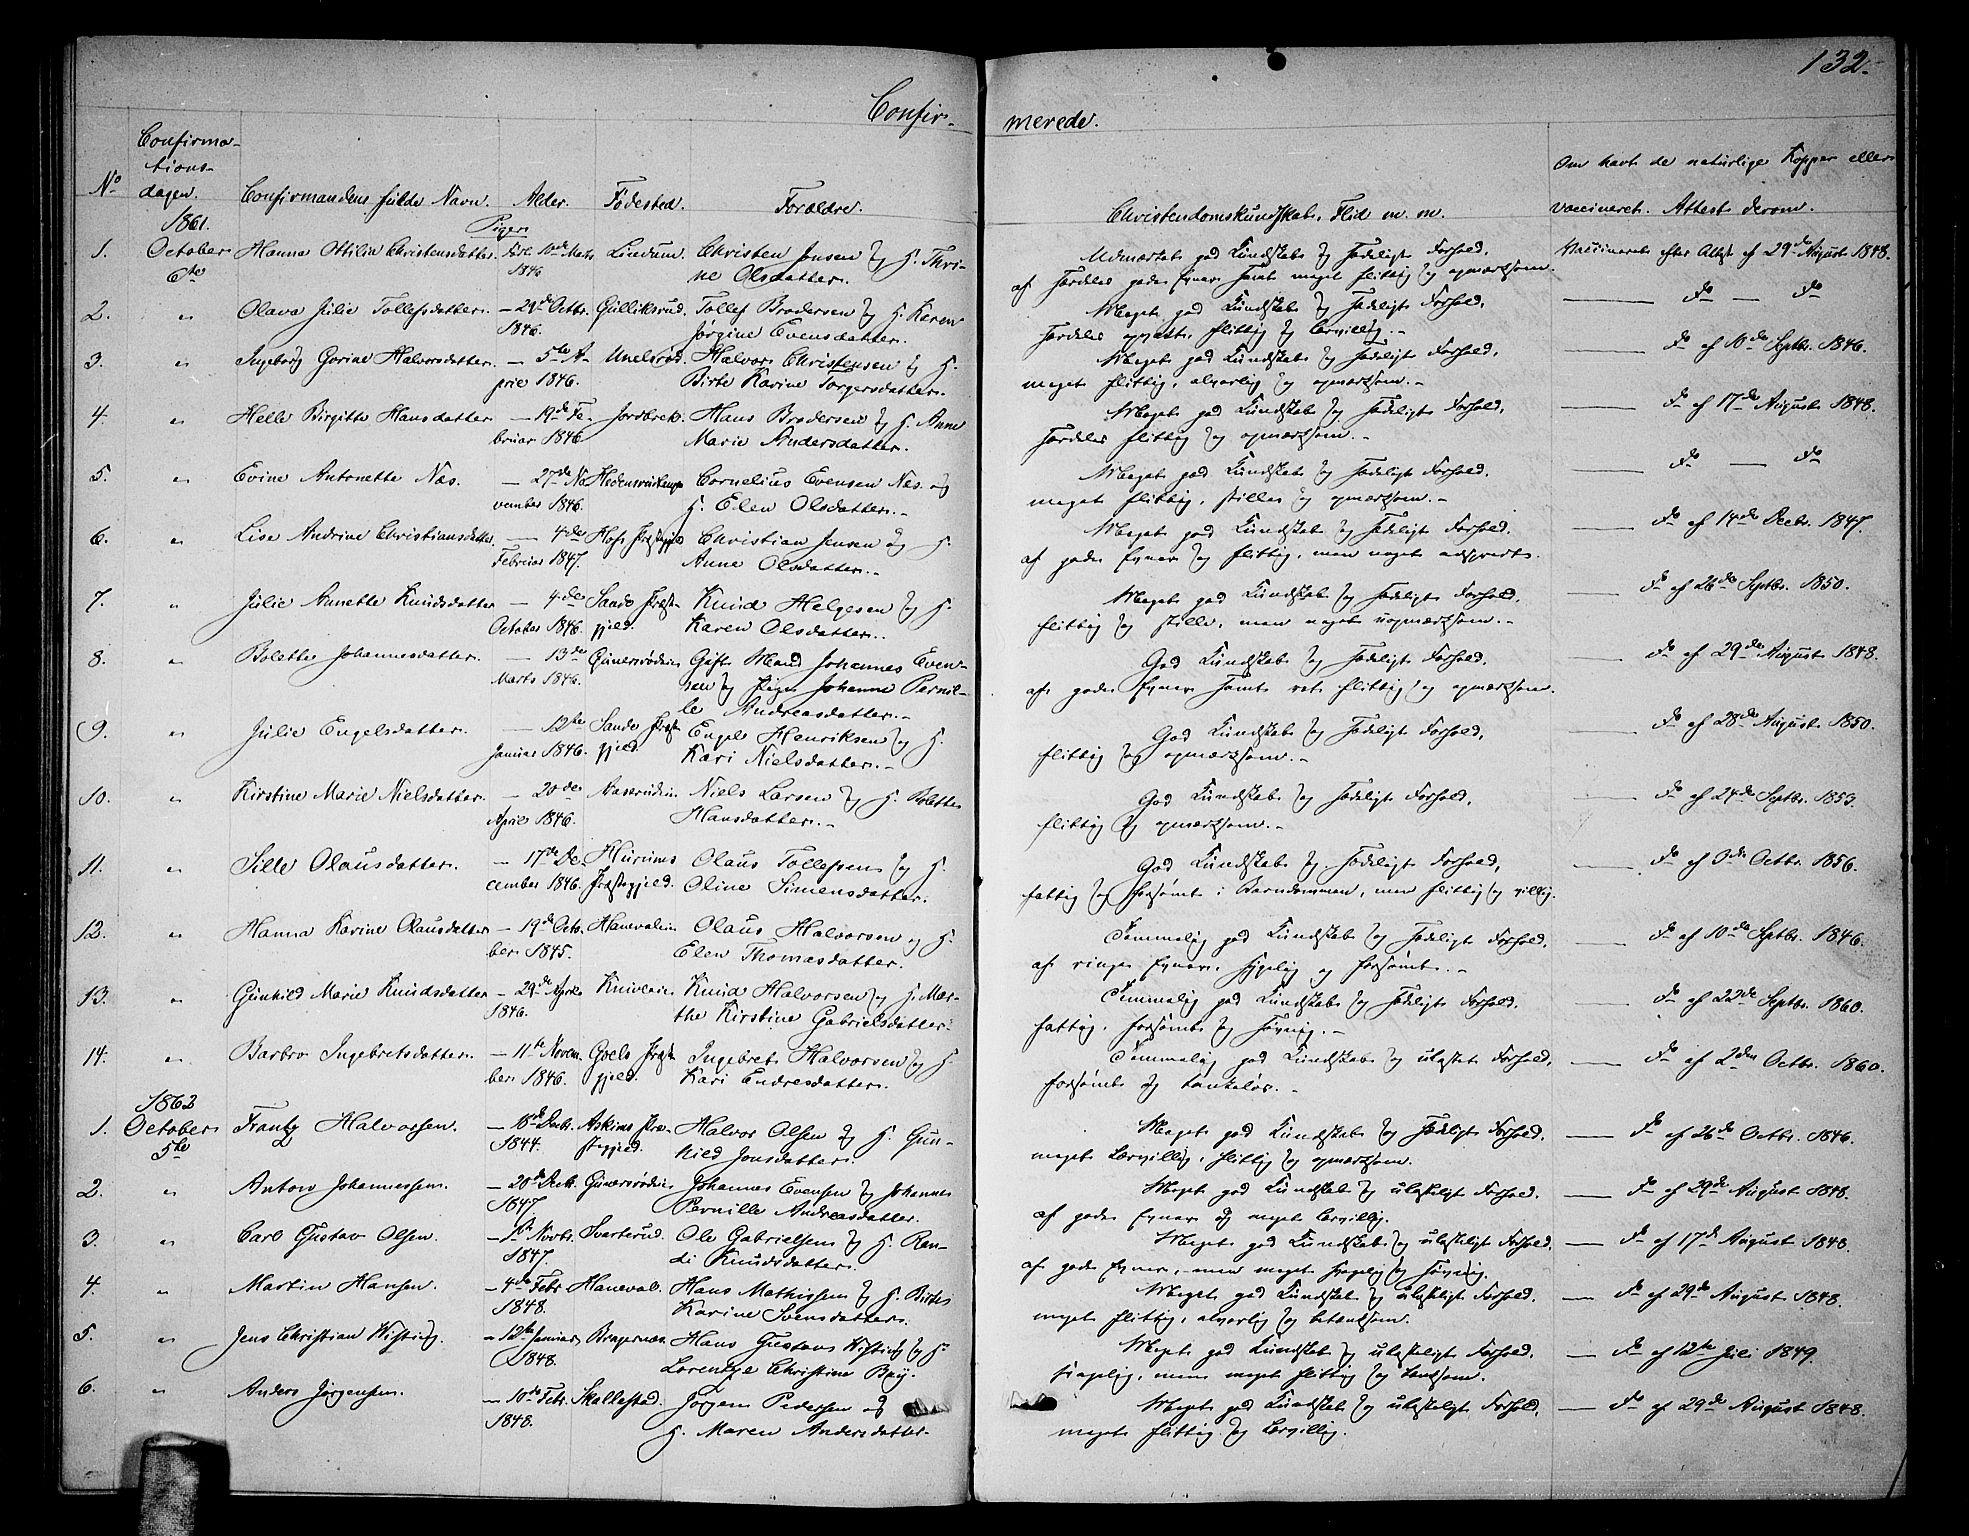 132.
Confir-
merede.
No
Confirma-
tions-
dagen.
Confirmandens fulde Navn.
Alder.
Fødested.
Forældre.
Christendomskundskab, Flid m. m.
Om havt de naturlige Kopper eller
vaccineret. Attest derom.
1861.
Piger
1. October Hanna Ottilia Christensdatter. Født 10de Marts Lindum. Christen Jensen og H. Thri-
6te 1846 ne Olsdatter.
Udmærket god Kundskab og sædeligt Forhold, Vaccineret efter Attest af 29de August 1848.
af særdeles gode Evner samt meget flittig og opmærksom.
2. " Olava Julie Tollefsdatter. — 29de Octbr. Gulliksrud. Tollef Brodersen og H. Karen
1846. Jørgine Evensdatter.
Meget god Kundskab og sædeligt Forhold, — Do — Do
særdeles opvakt, flittig og lærvillig.-
3. " Ingeborg Gorine Halvorsdatter. — 5te A- Halvor Christensen og H.
pril 1846. Birte Karine Torgersdatter.
Meget god Kundskab og sædeligt Forhold, — Do af 10de Septbr. 1846.
meget flittig, alvorlig og opmærksom.-
4. " Helle Birgitte Hansdatter — 19de Fe- Jordbræk. Hans Brodersen og H. Anne
bruar 1846 Marie Andersdatter.
Meget god Kundskab og sædeligt Forhold, — Do af 17de August 1848.
særdeles flittig og opmærksom.-
5. " Evine Antonette Næs. — 27de No- Cornelius Evensen Næs og
vember 1846. H. Elen Olsdatter.-
Meget god Kundskab og sædeligt Forhold. — Do — Do
meget flittig, stille og opmærksom.-
6. " Lise Andrine Christiansdatter. — 4de Hofs Præstegjeld Christian Jensen og H.
Februar 1847. Anne Olsdatter.-
Meget god Kundskab og sædeligt Forhold. — Do af 14de Decbr. 1847.
af gode Evner og flittig, men noget adspredt.
7. " Julie Annette Knudsdatter — 4de Sande Præst- Knud Helgesen og H.
October 1846. gjeld. Karen Olsdatter.
Meget god Kundskab og sædeligt Forhold, — Do af 26de Septbr. 1850.
flittig og stille, men noget uopmærksom.-
8. " Bolette Johannesdatter. — 13de Gunersrødeie Gift Mand Johannes Even-
Marts 1846. sen og Pige Johanne Pernil-
le Andreasdatter.-
God Kundskab og sædeligt Forhold, — Do af 29de August 1848.
af gode Evner samt ret flittig og opmærksom.
9. " Julie Engelsdatter. — 12te Sande Præst- Engel Henriksen og H.
Januar 1846. gjeld. Kari Nielsdatter.-
God Kundskab og sædeligt Forhold, — Do af 28de August 1850.
flittig og opmærksom.-
10. " Kirstine Marie Nielsdatter. — 20de Niels Larsen og H. Bolette
April 1846. Hansdatter.-
God Kundskab og sædeligt Forhold, — Do af 24de Septbr. 1853.
flittig og opmærksom.-
11. " Sille Olausdatter. — 17de De- Hurums Olaus Tollefsen og H.
cember 1846. Præstegjeld. Oline Simensdatter.
God Kundskab og sædeligt Forhold, — Do af Octbr. 1856.
fattig og forsømt i Barndommen, men flittig og villig.
12. " Hanna Karine Olausdatter — 19de Octo- Hanevaleie Olaus Halvorsen og H.
ber 1845. Elen Thomasdatter.
Temmelig god Kundskab og sædeligt Forhold, — Do af 10de Septbr. 1846.
af ringe Evner, sygelig og forsømt.-
13. " Gunhild Marie Knudsdatter — 29de April Kniveeie Knud Halvorsen og H. Mar-
1846. the Kirstine Gabrielsdatter.
Temmelig god Kundskab og sædeligt Forhold. — Do af 22de Septbr. 1860.
fattig, forsømt og søvnig.-
14. " Barbro Ingebretsdatter. — 11te Novem- Goels Præst- Ingebret Halvorsen og H.
ber 1846. gjeld. Kari Endresdatter.
Temmelig god Kundskab og ulastet Forhold, — Do af 2den Octbr. 1860.
forsømt og tankeløs.-
1862
1. October Frantz Halvorsen. — 18de Decbr. Askims Præ- Halvor Olsen og H. Gun-
5te 1844. stegjeld. hild Jonsdatter.
Meget god Kundskab og sædeligt Forhold. — Do af 26de Octbr. 1846.
meget lærvillig, flittig og opmærksom.
2. " Anton Johannessen. — 20de Decbr. Gunersrødeie Johannes Evensen og Johanne
1847. Pernille Andreasdatter.
Meget god Kundskab og ulasteligt Forhold. — Do af 29de August 1848.
af gode Evner og meget lærvillig.
3. " Carl Gustav Olsen. Novbr. Svarterud. Ole Gabrielsen og H. Ran-
1847. di Knudsdatter.
Meget god Kundskab og ulasteligt Forhold. — Do af 17de August 1848.
af gode Evner, men meget svagelig og søvnig.
4. " Martin Hansen. — 4de Febr. Haneval. Hans Mathissen og H. Birte
1848. Karine Svensdatter.
Meget god Kundskab og ulasteligt Forhold. — Do af 29de August 1848.
meget flittig, alvorlig og betænksom.
5. " Jens Christian Wisting. — 12te Januar Bragernæs. Hans Gustav Wisting og H.
1848. Lorentze Christine Bøy.
Meget god Kundskab og ulasteligt Forhold. — Do af 12te Juli 1849.
svagelig, men meget flittig og tænksom.
6. " Anders Jørgensen. — 10de Febr. Skallestad. Jørgen Pedersen og
1848. H. Maren Andersdatter.
Meget god Kundskab og ulasteligt Forhold, — Do af 29de August 1848.
meget flittig og lærvillig.